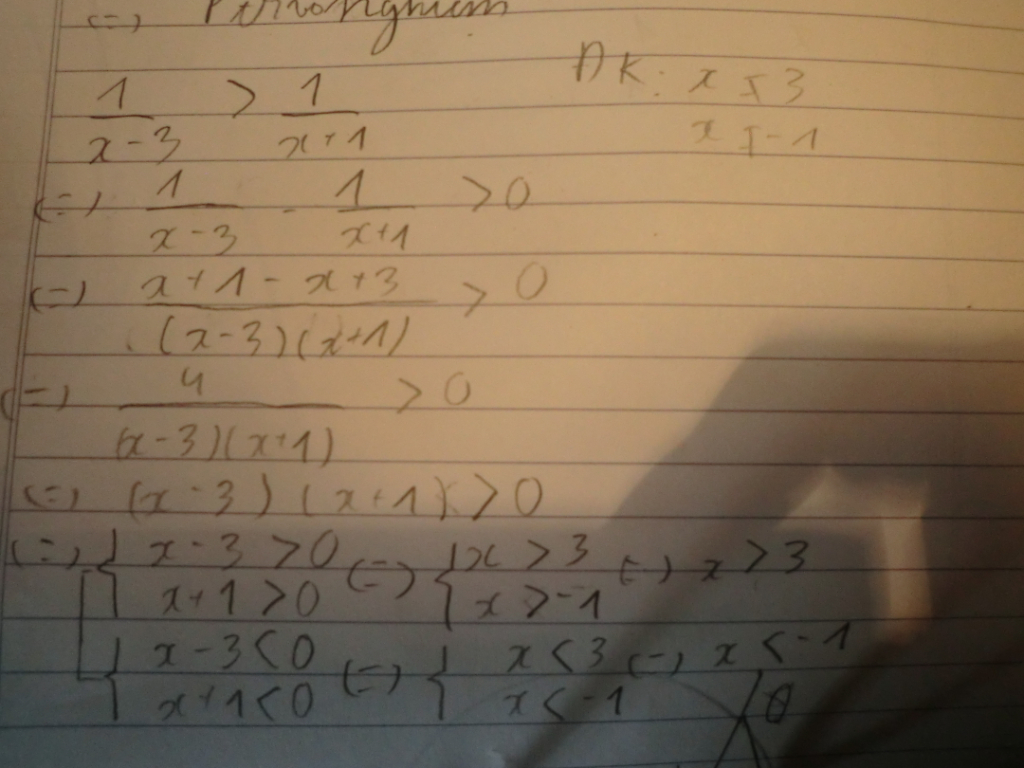 (=)
1/(x-3) > 1/(x+1) ĐK: x ≠ 3
x ≠ -1
(=) 1/(x-3) - 1/(x+1) > 0
(=) (x+1-x+3)/((x-3)(x+1)) > 0
(=) 4/((x-3)(x+1)) > 0
(=) (x-3)(x+1) > 0
(=) [ { x-3>0 (=) { x>3 (=) x>3
x+1>0 x>-1
{ x-3<0 (=) { x<3 (=) x<-1
x+1<0 x<-1